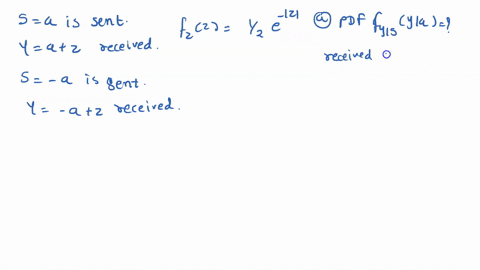 S=a is sent.
Y=a+z received.
S=-a is sent.
Y=-a+z received.
f_z(z) = 1/2 e^{-|z|}
ⓐ PDF f_{y|s}(y|a)=?
received